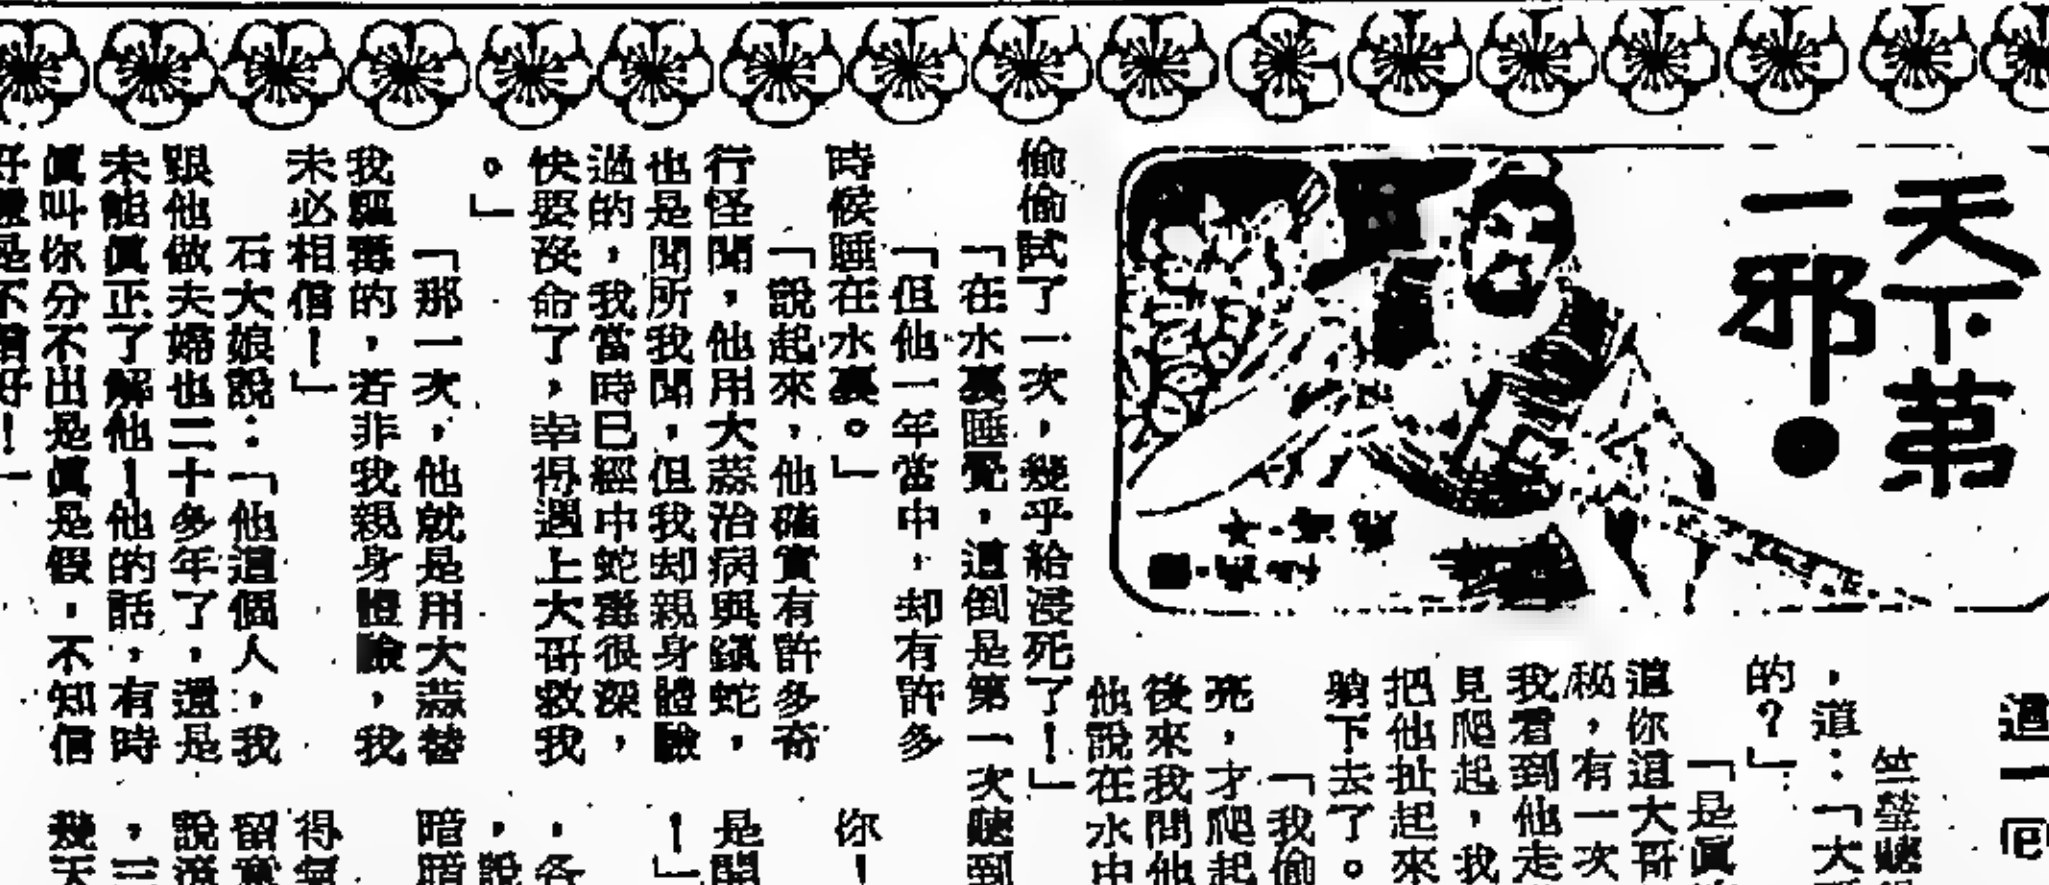 天下第
一邪●
這一回
竺瑩聽
，道：「大
的？」
「是眞
這你這大哥
秘，有一次
我看到他走
見爬起，我
把他扯起來
躺下去了。
「我偷
亮，才爬起
後來我問他
他說在水中
偷偷試了一次，幾乎給浸死了！」
「在水裏睡覺，這倒是第一次聽到
「但他一年當中，却有許多
時候睡在水裏。」
「說起來，他確實有許多奇
行怪聞，他用大蒜治病與鎮蛇，
也是聞所我聞，但我却親身體驗
過的，我當時已經中蛇毒很深，
快要沒命了，幸得遇上大哥救我
。」
「那一次，他就是用大蒜替
我驅毒的，若非我親身體驗，我
未必相信！」
石大娘說：「他這個人，我
跟他做夫婦也二十多年了，還是
未能眞正了解他！他的話，有時
眞叫你分不出是眞是假，不知信
好還是不信好！」
你！
是開
！」
，各
，說
暗暗
得氣
留意
說
，三
幾天